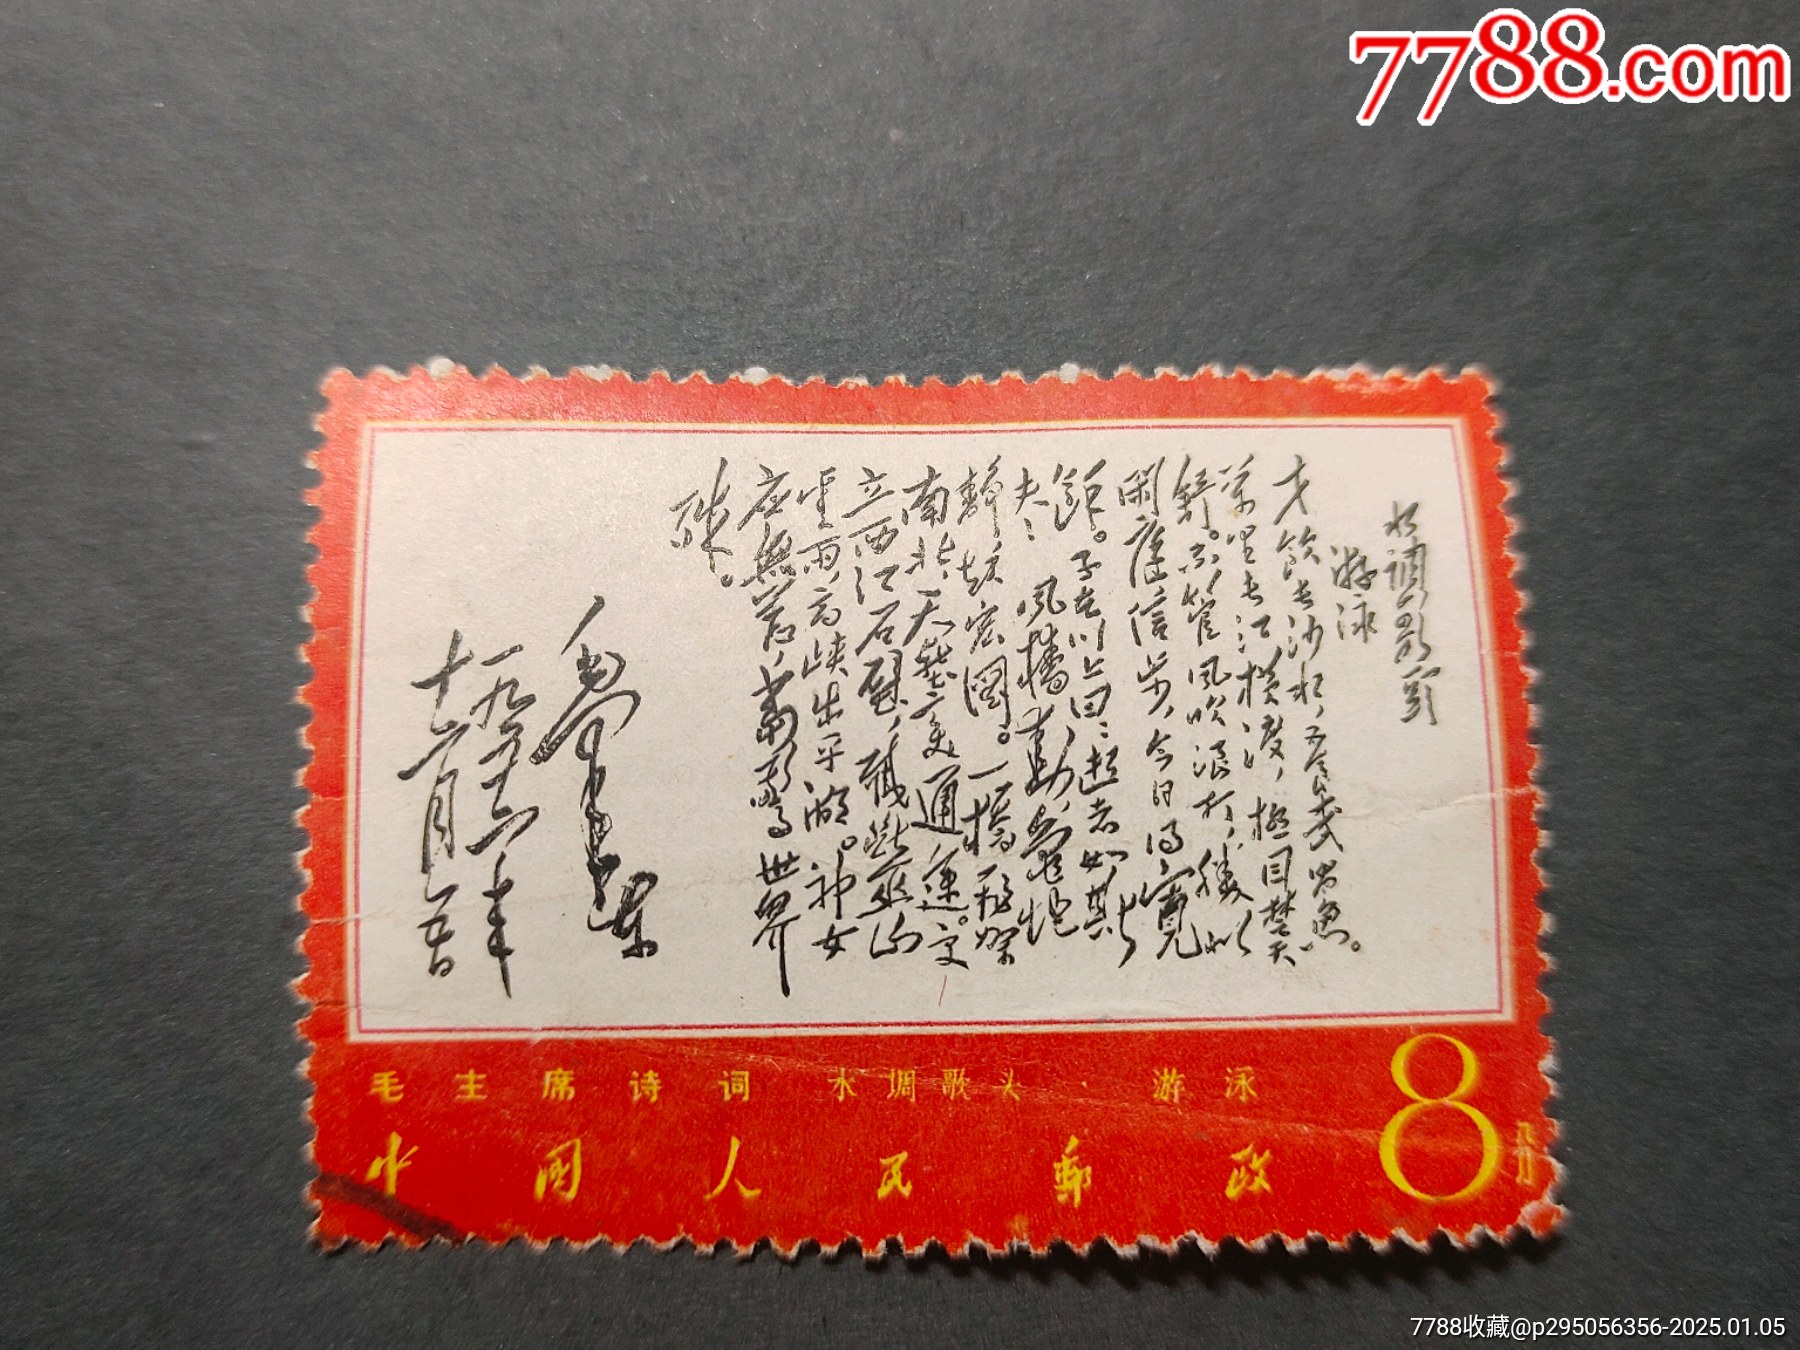 7788.com
水調歌頭
游泳
才飲长沙水,又食武昌魚。
萬里长江横渡,極目楚天
舒。不管風吹浪打,勝似
閑庭信步,今日得寬
餘。子在川上曰:逝者如斯
夫!風檣動,龜蛇
靜,起宏圖。一橋飛架
南北,天塹变通途。更
立西江石壁,截断巫山
雲雨,高峡出平湖。神女
应無恙,當驚世界
殊。
毛泽东
一九五六年
十二月五日
毛主席诗词 水调歌头·游泳
中国人民郵政
8分
7788收藏@p295056356-2025.01.05